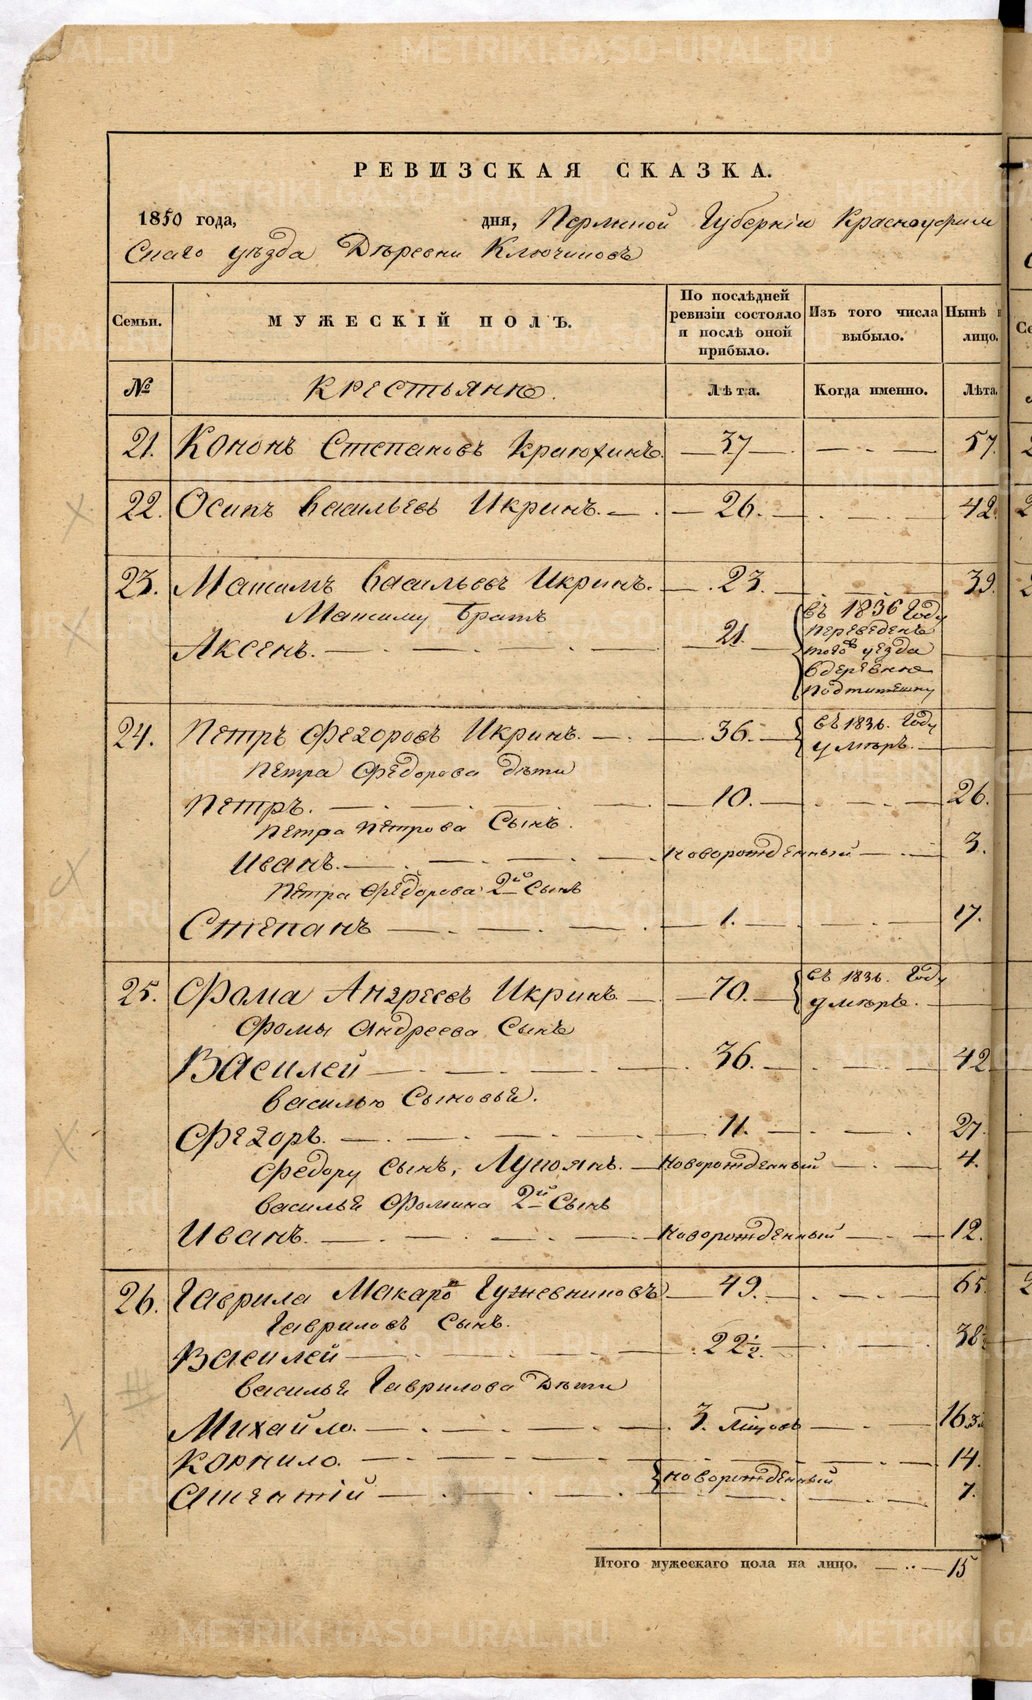 РЕВИЗСКАЯ СКАЗКА.
1850 года, дня, Пермской Губерніи Красноуфим
Скаго уѣзда Дѣревни Ключиковъ
Семьи. МУЖЕСКІЙ ПОЛЪ. По послѣдней ревизіи состояло и послѣ оной прибыло. Изъ того числа выбыло. Нынѣ лицо.
№ Крестьяне. Лѣта. Когда именно. Лѣта
21. Кононъ Степановъ Крюхинъ. 37 57.
22. Осипъ Васильевъ Икринъ. 26. 42.
23. Максимъ Васильевъ Икринъ. 23. 39.
Максиму Братъ
Аксенъ. 21. въ 1836 Году
переведенъ
тогожъ уезда
в деревню
24. Петръ Федоровъ Икринъ. 36. въ 1836. Году
умѣръ.
Петра Федорова дѣти
Петръ. 10. 26.
Петра Петрова Сынъ.
Иванъ. новорожденный 3.
Петра Федорова 2й Сынъ
Степанъ 1. 17.
25. Фома Андреевъ Икринъ 70. въ 1836. Году
умѣръ.
Фомы Андреева Сынъ
Василей 36. 42
Василью Сыновья.
Федоръ. 11. 27.
Федору Сынъ, Лукоянъ. новорожденный 4.
Василья Фомина 2й Сынъ
Иванъ. новорожденный 12.
26. Гаврила Макаровъ Гужевниковъ 49. 65.
Гавриловъ Сынъ.
Василей 22½. 38½
Василья Гаврилова Дѣти
Михайло. 3. мѣсцовъ 16
Корнило. 14.
новорожденный
Игнатій 7.
Итого мужескаго пола на лицо. 15
METRIKI.GASO-URAL.RU